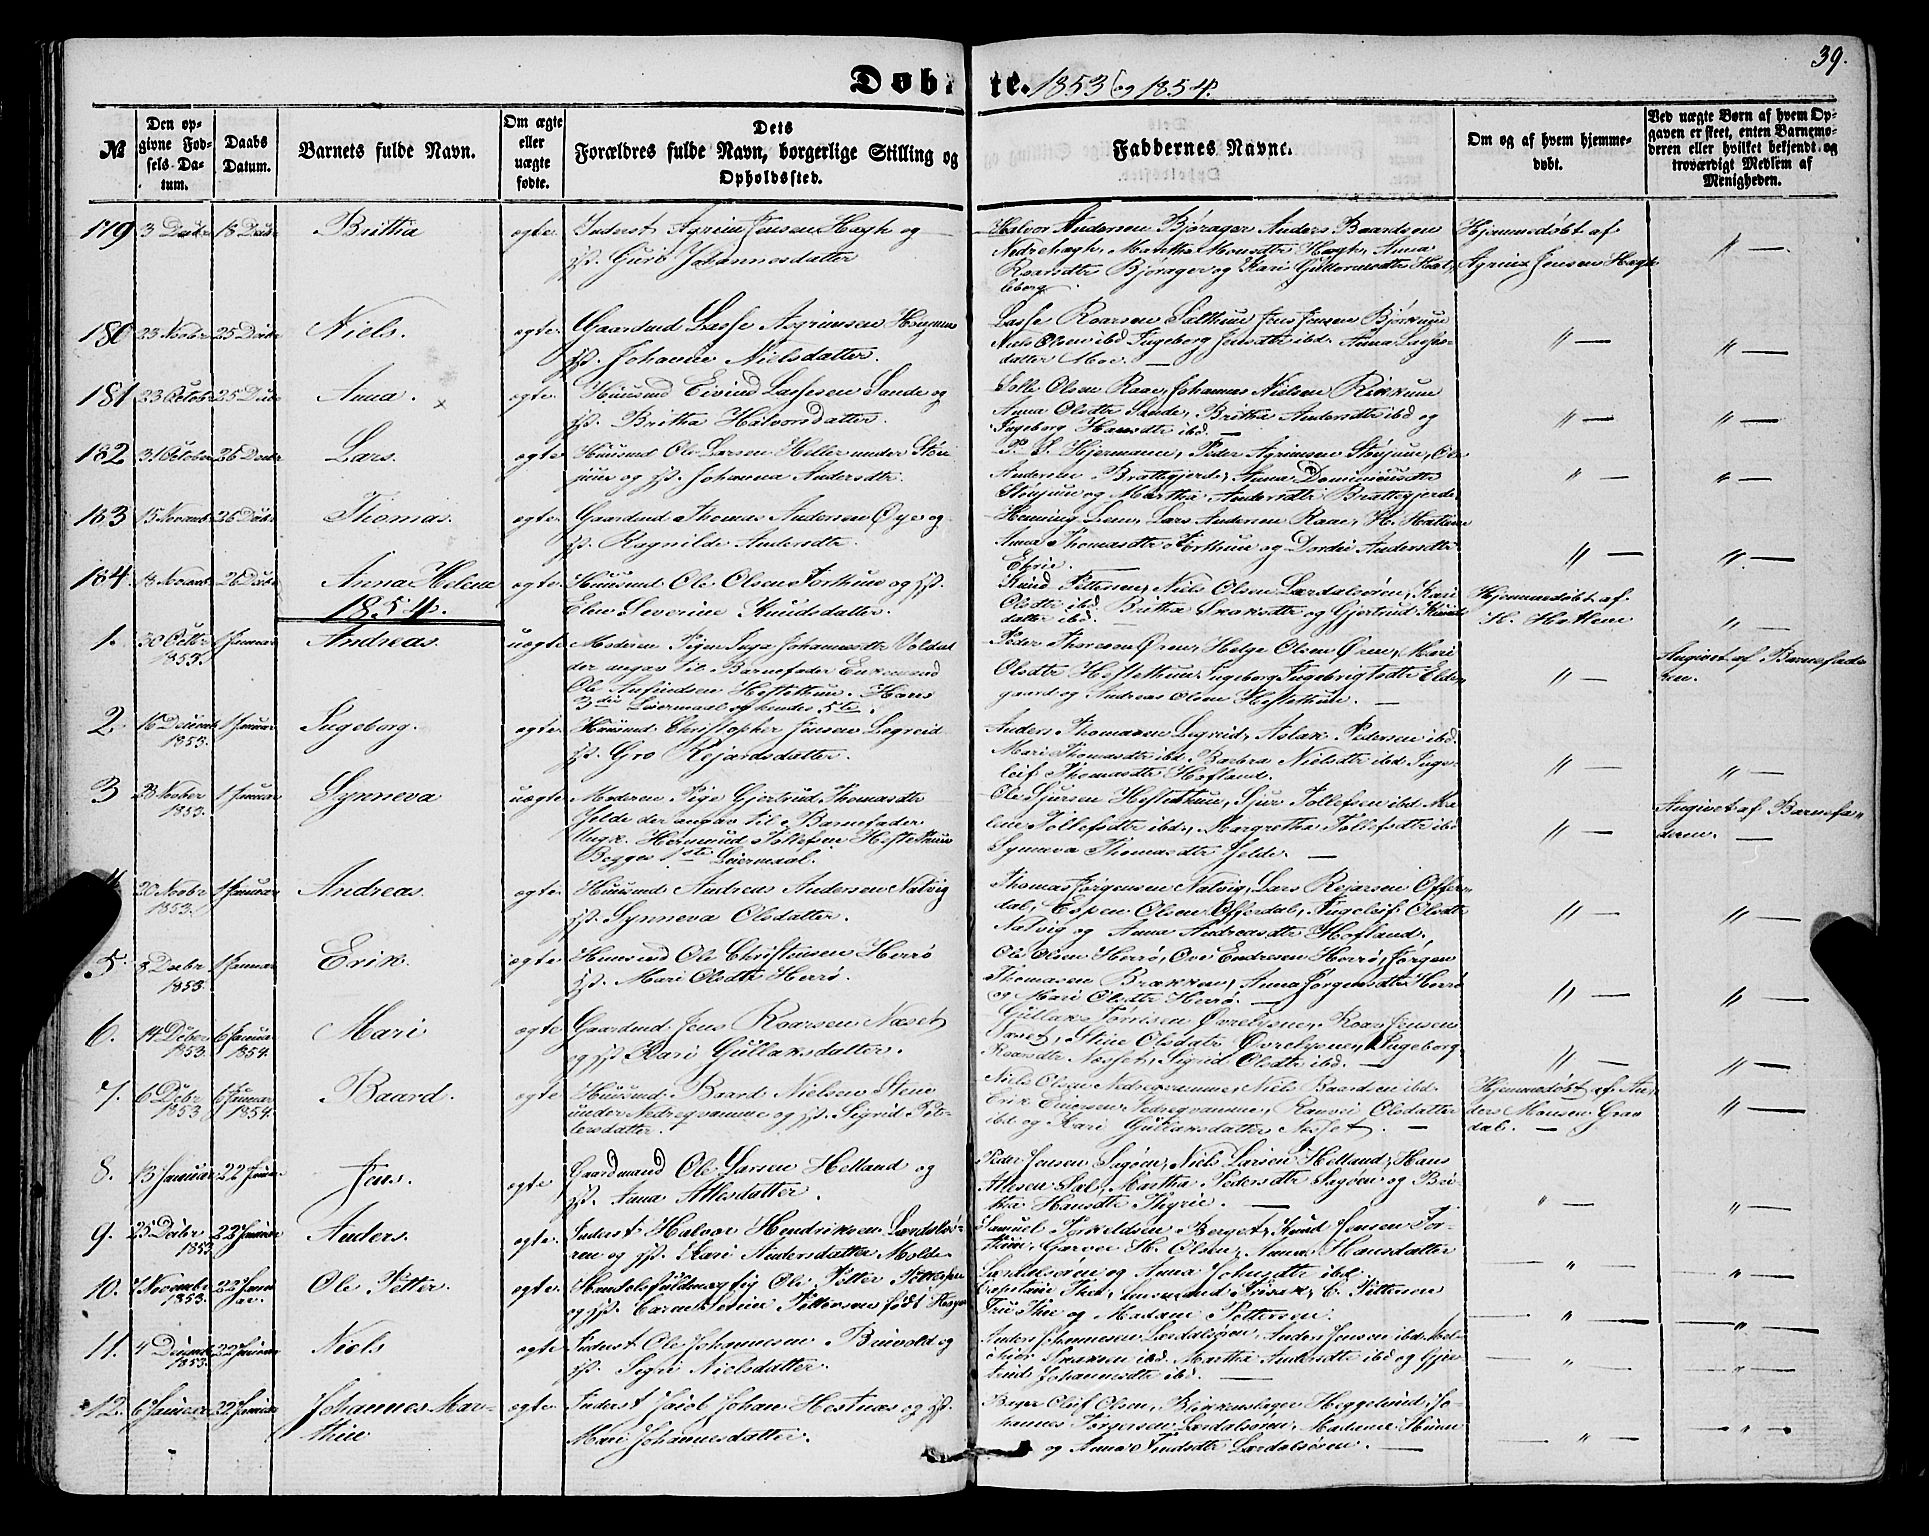 39.
Døbte. 1853 og 1854.
№
Den opgivne Fødsels-Datum.
Daabs Datum.
Barnets fulde Navn.
Om ægte eller uægte fødte.
Dets Forældres fulde Navn, borgerlige Stilling og Opholdssted.
Faddernes Navne.
Om og af hvem hjemmedøbt.
Ved uægte Børn af hvem Opgaven er skeet, enten Barnemoderen eller hvilket bekjendt og troværdigt Medlem af Menigheden.
179 3 Decbr 18 Decbr Brittha ægte Inderst Agrim Jensen Hægh og
hst. Guri Johannesdatter
Halvor Andersen Bjørager Anders Baardsen
Nedrehægh, Martha Monsdtr Hægh, Anna
Roarsdtr Bjørager og Kari Guttormsdtr
Hjemmedøbt af
Agrim Jensen Hægh
180 23 Novbr 25 Decbr Niels. ægte Gaardmd Lasse Asgrimsen
hst. Johanne Nielsdatter.
Lasse Roarsen Salthun Jens Jensen Bjørkum
Niels Olsen ibd Ingeborg Jensdtr ibd. Anna Lasses-
datter Moe
181 23 Octobr 25 Decbr Anna. ægte Huusmd Eivind Lassesen Sande og
hst. Britha Halvorsdatter.
Olsen Raae, Johannes Nielsen
Anna Olsdtr Sande, Britha Andersdtr ibd og
Ingeborg Hansdtr ibd.
182 31 October 26 Decbr Lars. ægte Huusmd Ole Larsen Heller under Støn-
jum og hst. Johanna Andersdtr.
Hjermann, Peder Agrimsen Stønjum, Ole
Andersen Brattegjerde, Anna Dominicusdtr
Stønjum og Martha Andersdtr Brattegjerde
183 15 Novembr 26 Decbr Thomas. ægte Gaardmd Thomas Andersen Øye og
hst. Ragnilde Andersdtr.
Henning Lem, Lars Andersen Raae, H. Hatlem
Anna Thomasdtr Torthun og Dordei Andersdtr
Eri
184 18 Novembr 26 Decbr Anna Helena ægte Huusmd Ole Olsen Torthun og hst.
Elen Severine Knudsdatter.
Knud Pettersen, Niels Olsen Lærdalsøren, Kari
Olsdtr ibd. Britha og Gjertrud Knuds-
datter ibd.
Hjemmedøbt af
H. Hatlem
1854.
1. 30 Octbr 1853. 1 Januar Andreas. uægte Moderen Pige Inga Johannesdtr Voldum
der angav til Barnefader Enkemand
Ole Anfindsen Heftethun. Hans
3die Leiermaal og hendes 5te.
Peder Thoresen Øren, Helge Olsen Øren, Mari
Olsdtr Heftethun, Ingeborg Ingebrigtsdtr Elde-
gaard og Andreas Olsen Heftethun.
Angivet af Barnefade-
ren.
2. 16 Decemb 1853. 1 Januar Ingeborg. ægte Huusmd Christopher Jensen Legreid
hst. Gro Rejarsdatter.
Anders Thomasen Legreid, Aslak Pedersen ibd.
Mari Thomasdtr ibd. Barbra Nielsdtr ibd. Inge-
leif Thomasdtr Hofland.
3 23 Novber 1853. 1 Januar Synneva uægte Moderen Pige Gjertrud Thomasdtr
Jelde der angav til Barnefader
Ungk. Hermund Tollefsen Heftethun
Begges 1ste Leiermaal.
Ole Sjursen Heftethun, Sjur Tollefsen ibd. Ma-
lene Tollefsdtr ibd, Margretha Tollefsdtr ibd
Synneva Thomasdtr Jelde.
Angivet af Barnefa-
deren.
20 Novbr 1853. 1 Januar Andreas. ægte Huusmd Andreas Andersen Natvig
hst. Synneva Olsdatter.
Thomas Jørgensen Natvig, Lars Rejarsen Offer-
dal, Espen Olsen Offerdal, Ingeleif Olsdtr
Natvig og Anna Andreasdtr Hofland.
5. 3 Decbr 1853. 1 Januar Erik. ægte Huusmd Ole Christensen Herrø
hst. Mari Olsdtr Herrø.
Ole Olsen Herrø, Ove Endresen Herrø, Jørgen
Thomasen Brækken, Anna Jørgensdtr Herrø
og Mari Olsdtr Herrø.
6. 14 Decbr 1853. 6 Januar 1854. Mari ægte Gaardmd Jens Roarsen Næset
og hst Kari Gullaksdatter.
Gullak Torrisen Øvrelysne, Roar Jensen
Næset, Stine Olsdtr Øvrelysne, Ingeborg
Roarsdtr Næset, Sigrid Olsdtr ibd.
7. 6 Decbr 1853. 6 Januar 1854. Baard. ægte Huusmd Baard Nielsen Steen
under Nedreqvamme og hst. Sigrid Pet-
tersdatter.
Niels Olsen Nedreqvamme, Niels Baardsen ibd.
Erik Nedreqvamme, Ranvei Olsdatter
ibd og Kari Gullaksdatter Næsset.
Hjemmedøbt af An-
ders Monsen Gran-
dal.
8. 13 Januar 22 Januar Jens. ægte Gaardmand Ole Larsen Helland og
hst. Anna Atlesdatter.
Peder Jensen Sagøen, Niels Larsen Helland, Hans
Atlesen Sæl, Martha Pedersdtr Sagøen og Bri-
tha Hansdtr Thyrie.
9. 25 Decbr 1853 22 Januar Anders. ægte Inderst Halvor Hendriksen Lærdalsø-
ren og hst. Kari Andersdatter Molde
Samuel Torkeldsen Berget, Knud Jensen Tor-
thun, Garver H. Olsen, Anna Hansdatter
Lærdalsøren og Anna Johnsdtr ibd.
10. 7 November 1853. 22 Januar Ole Petter. ægte Handelsfuldmægtig Ole Petter Pettersen
og hst. Pettersen født
E. Pettersen
Fru Thue og Madame Pettersen.
11. 4 Decembr 1853. 22 Januar Niels ægte Inderst Ole Johannesen og
hst. Sigri Nielsdatter.
Anders Johannesen Lærdalsøren, Anders Jensen ibd. Mel-
chior ibd. Martha Andersdtr ibd og Gjer-
trud Johannesdtr ibd.
12. 6 Januar 22 Januar Johannes Mar-
thin ægte Inderst Johan Hestnæs og hst.
Mari Johannesdatter.
Bager Oluf Olsen, Blikkenslager Heggelund, Jo-
hannes Torgersen Lærdalsøren, Madame
og Anna Lærdalsøren.